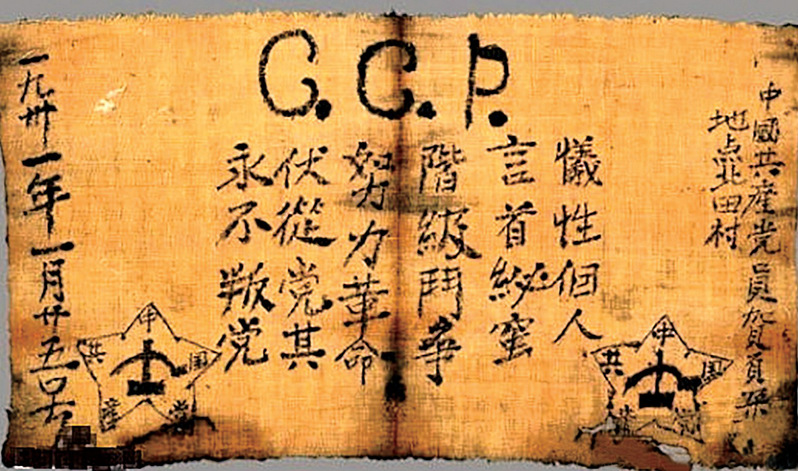 中國共產党員
地点北田村
C.C.P.
犧性個人
言首
階級鬥爭
努力革命
伏從党其
永不叛党
一九卅一年一月廿五号
中
共
国
產
党
中
共
国
党